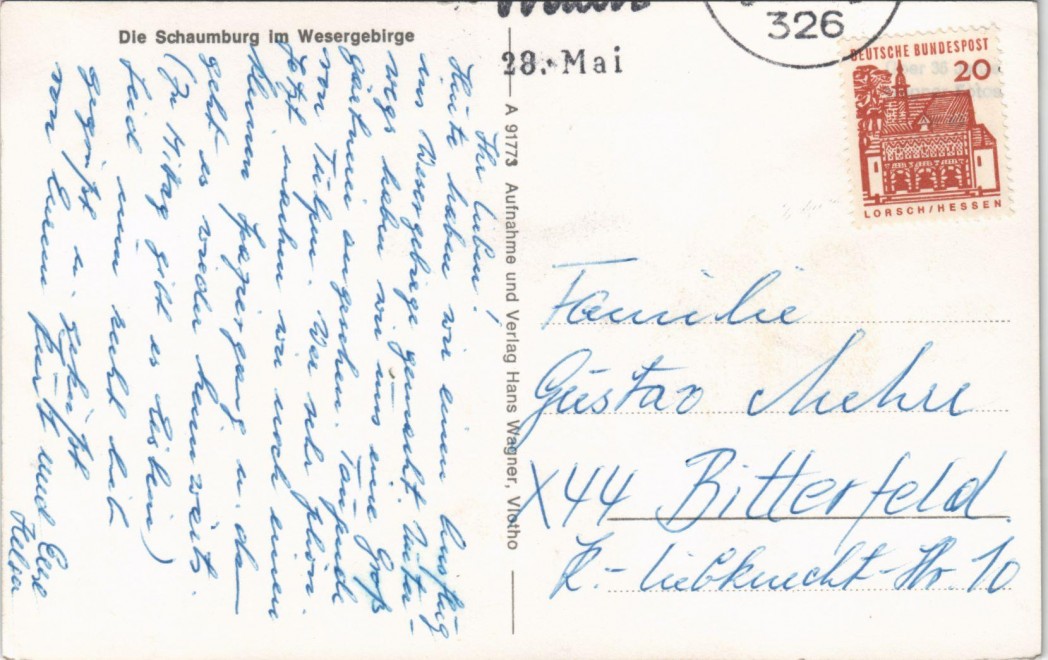 Die Schaumburg im Wesergebirge
Ihr Lieben!
Heute haben wir einen Ausflug
ins Wesergebirge gemacht. Unter-
wegs haben wir uns eine Groß
gärtnerei angesehen. Tausende
von Tulpen. War sehr schön.
Jetzt machen wir noch einen
kleinen Spaziergang u. dann
geht es wieder heimwärts.
(Zu Mittag gibt es
Seid nun recht herzl.
gegrüßt u. geküßt
von Euren Kurt und Else
A 91773 Aufnahme und Verlag Hans Wagner, Vlotho
326
28. Mai
DEUTSCHE BUNDESPOST
20
LORSCH/HESSEN
Familie
Gustav
X44 Bitterfeld
K.-Liebknecht-Str. 10